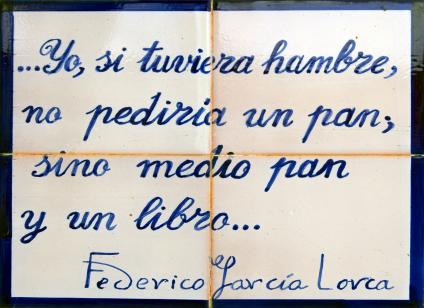 ...Yo, si tuviera hambre,
no pediría un pan;
sino medio pan
y un libro...
Federico García Lorca